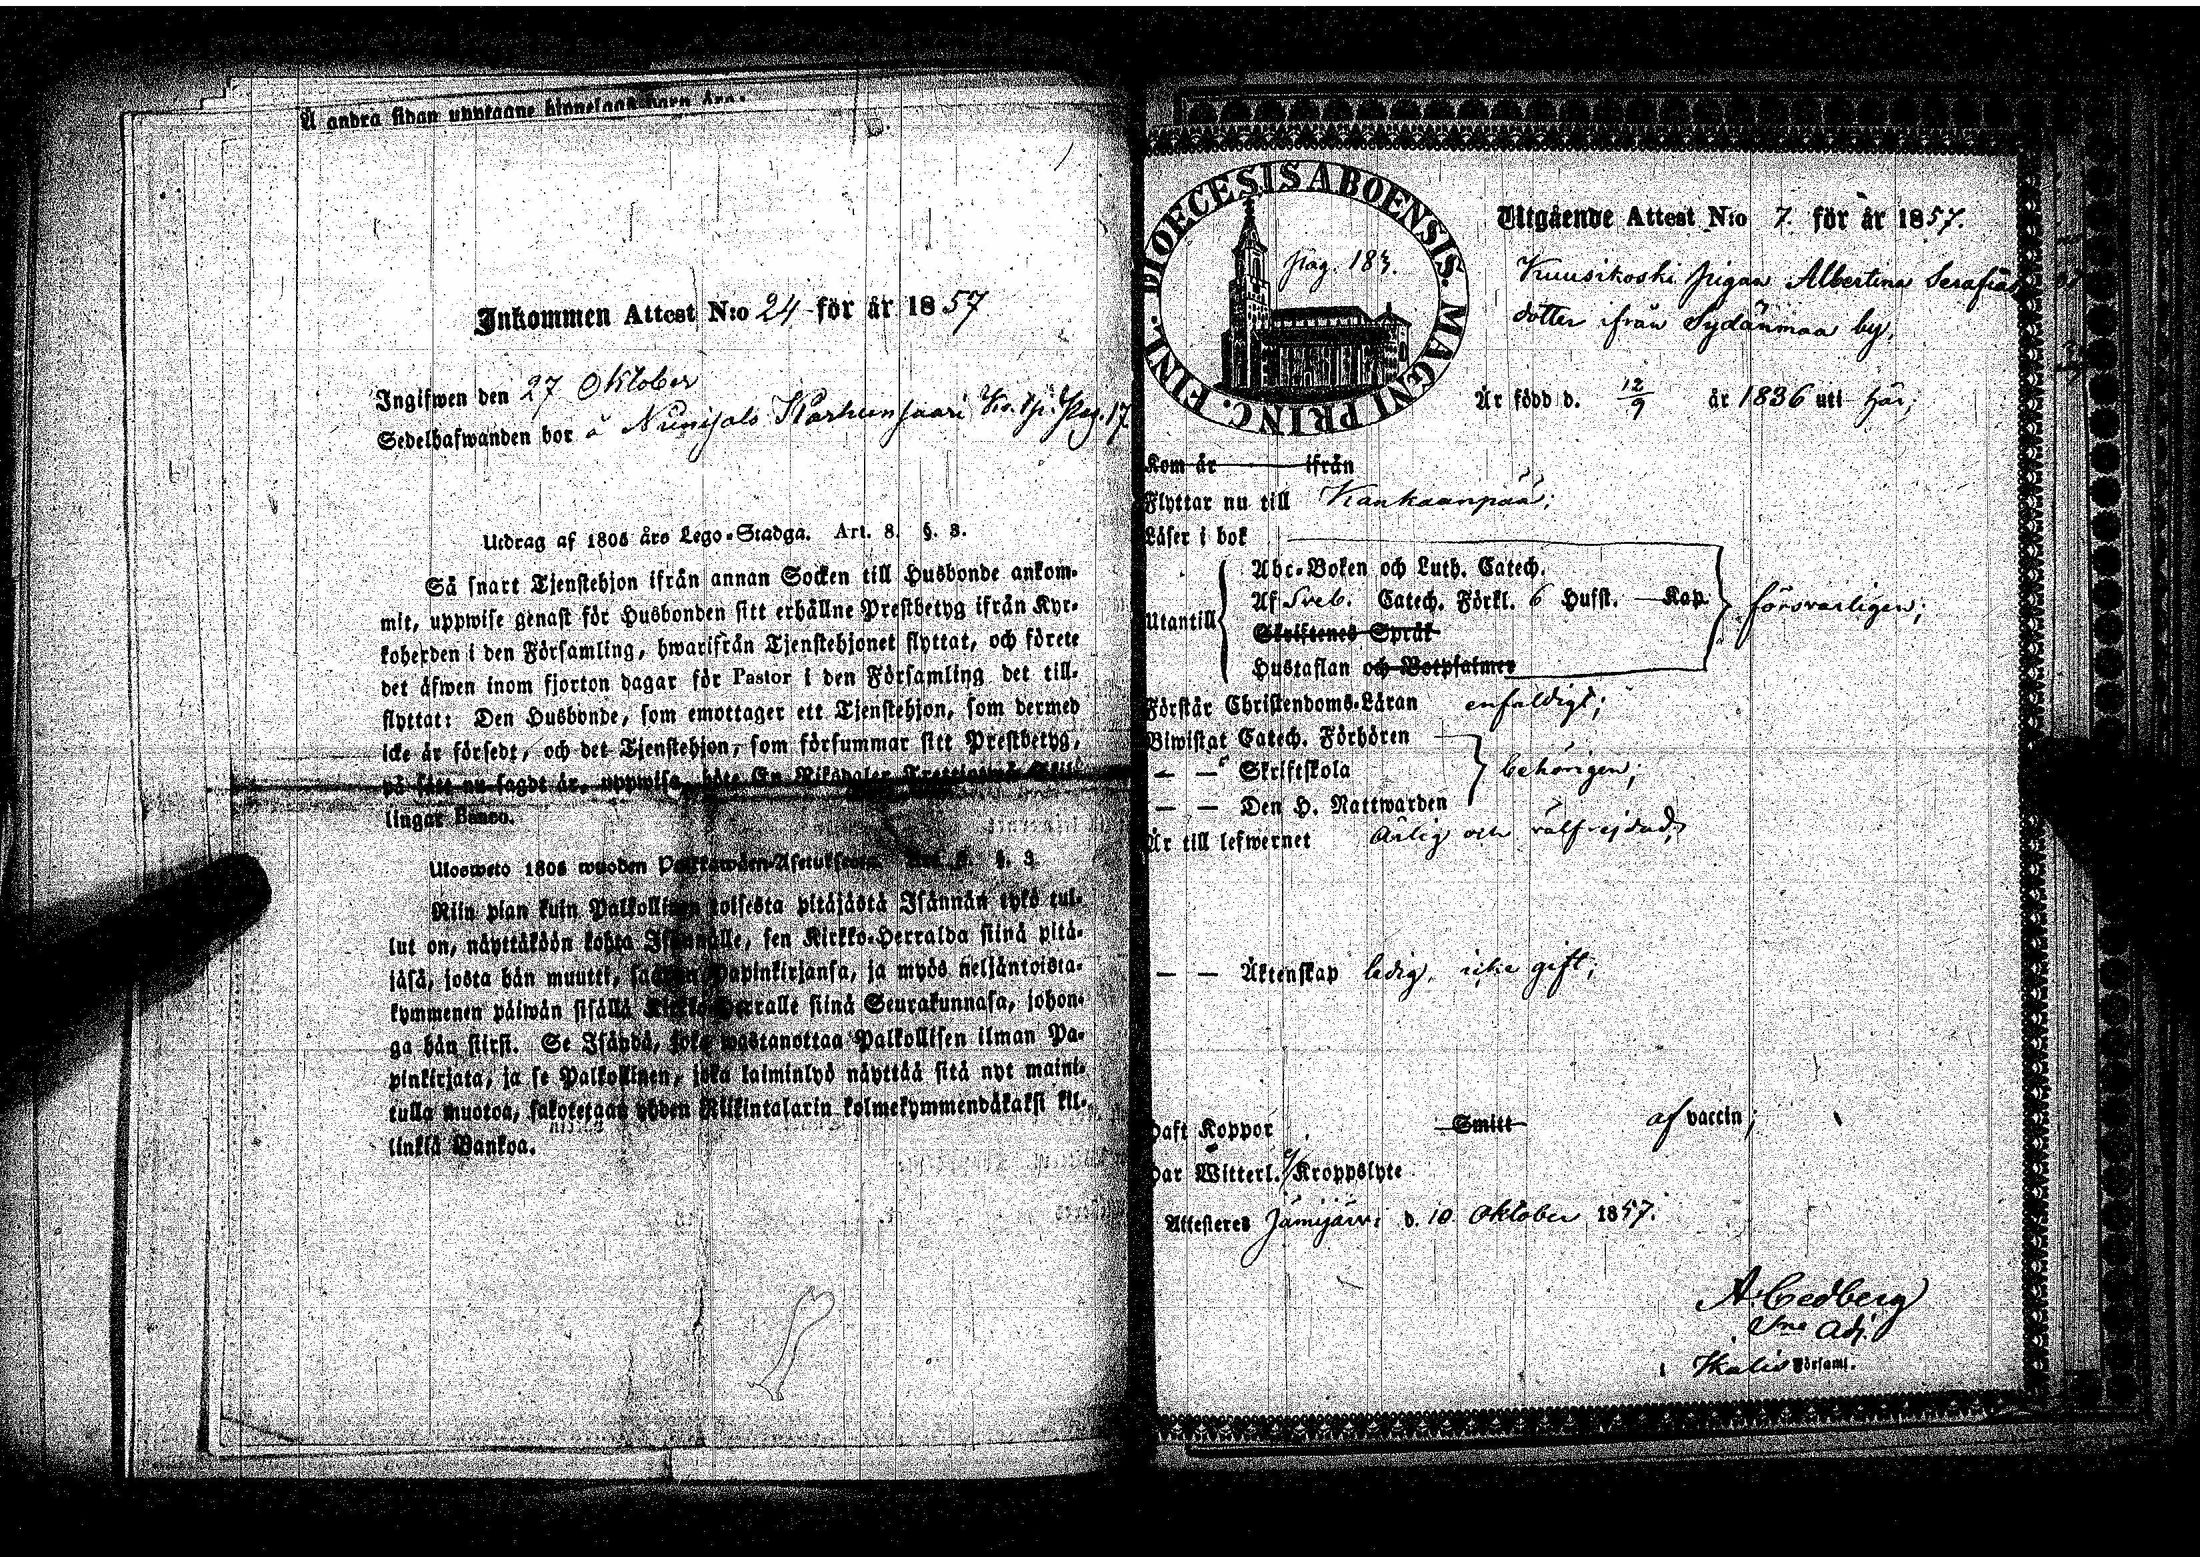 Å andra sidan
Inkommen Attest N:o 24 för år 1857
Ingifwen den 27 Oktober
Sedelhafwanden bor å Niinisalo Karhunsaari
Utdrag af 1805 års Lego-Stadga. Art. 8. §. 3.
Så snart Tjenstehjon ifrån annan Socken till Husbonde ankom-
mit, uppwise genast för Husbonden sitt erhållne Prestbetyg ifrån Kyr-
koherden i den Församling, hwarifrån Tjenstehjonet flyttat, och förete
det äfwen inom fjorton dagar för Pastor i den Församling det till-
flyttat: Den Husbonde, som emottager ett Tjenstehjon, som dermed
icke är försedt, och det Tjenstehjon, som försummar sitt Prestbetyg,
på sätt nu sagdt är, uppwisa, böte En Riksdaler Trettiotwå Skil-
lingar Banco.
Ulosweto 1805 wuoden Palkkawäen-Asetuksesta. Art. 8. §. 3
Niin pian kuin Palkollinen toisesta pitäjästä Isännän tykö tul-
lut on, näyttäköön kohta Isännälle, sen Kirkko-Herralda siinä pitä-
jäsä, josta hän muutti, saadun Papinkirjansa, ja myös neljäntoista-
kymmenen päiwän sisällä Kirkko-Herralle siinä Seurakunnasa, johon-
ga hän siirsi. Se Isändä, joka wastanottaa Palkollisen ilman Pa-
pinkirjata, ja se Palkollinen, joka laiminlyö näyttää sitä nyt maini-
tulla muotoa, sakotetaan yhden Riikintalarin kolmekymmendäkaksi kil-
linkiä Bankoa.
DIOECESIS ABOENSIS. MAGNI PRINC. FINL.
pag. 183.
Utgående Attest N:o 7. för år 1857.
Kuusikoski pigan Albertina Serafias
dotter ifrån Sydänmaa by,
Är född d. 12/9 år 1836 uti här;
Kom år ifrån
Flyttar nu till Kankaanpää;
Läser i bok
Utantill
Abc-Boken och Luth. Catech.
Af Sveb. Catech. Förkl. 6 Hufst. Kap.
Skriftenes Språk
Hustaflan och Botpsalmer
försvarligen;
Förstår Christendoms-Läran enfaldigt;
Biwistat Catech. Förhören
— — Skriftskola behörigen;
— — Den H. Nattwarden
Är till lefwernet ärlig och välfrejdad;
— — Äktenskap ledig, icke gift;
Haft Koppor Smitt af vaccin;
Har Witterl. Kroppslyte
Attesteres Jämijärvi d. 10 Oktober 1857.
A. Cedberg
Adj.
Ikalis Församl.